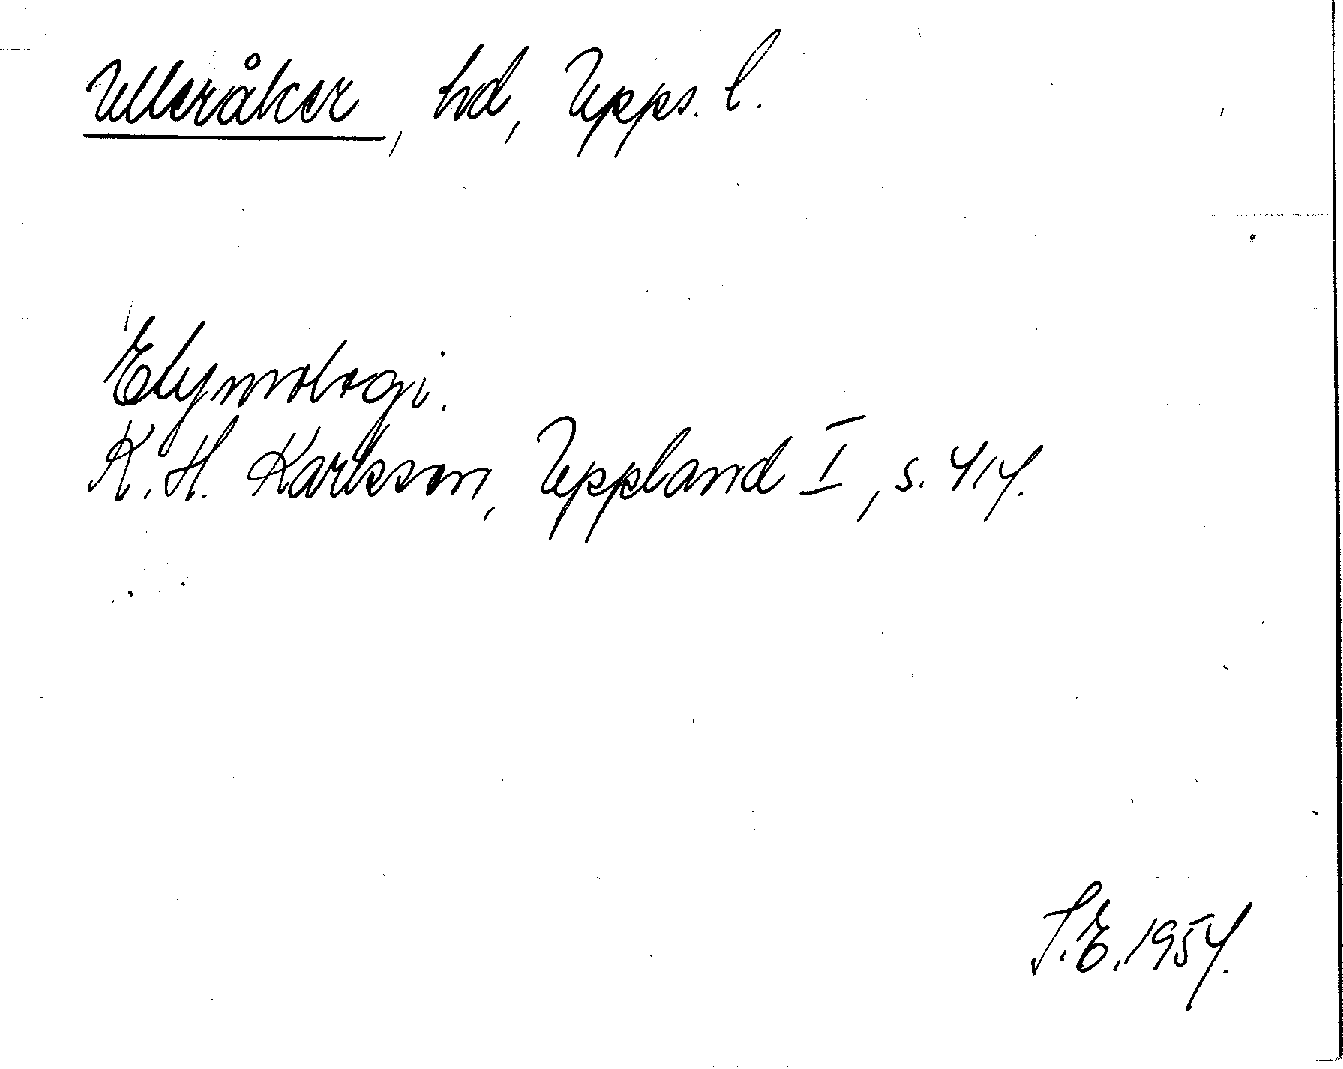 Ulleråker, hd, Upps. l.
Etymologi.
K. H. Karlsson, Uppland I, s. 414.
S.E. 1954.